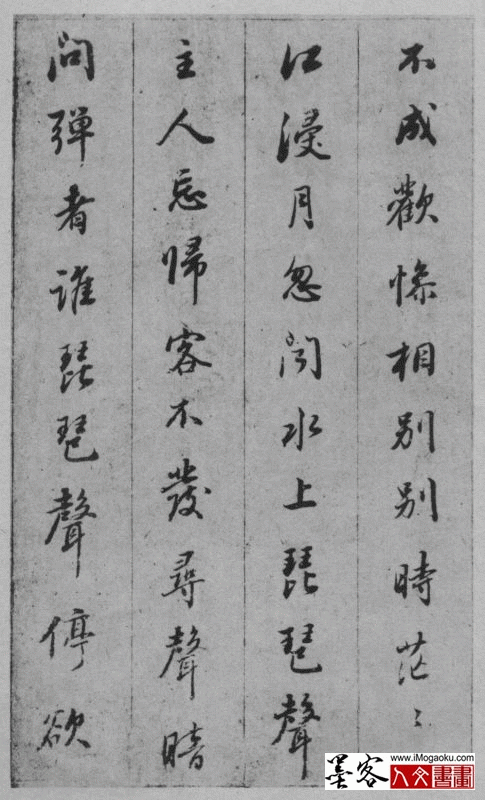 不成歡惨相別別時茫〻
江浸月忽聞水上琵琶聲
主人忘歸客不發尋聲暗
問弹者誰琵琶聲停欲
www.iMogaoku.com
墨客
人文書畫